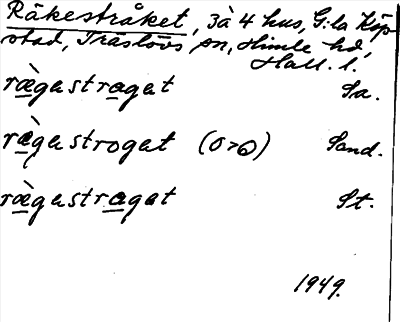 Råkestråket, 3 à 4 hus, G:la Köp
stad, Träslövs sn, Himle hd,
Hall. l.
ræ̀gestraget Sa.
ræ̀gestroget (o>ɷ) Sand.
ræ̀gestraget St.
1949.